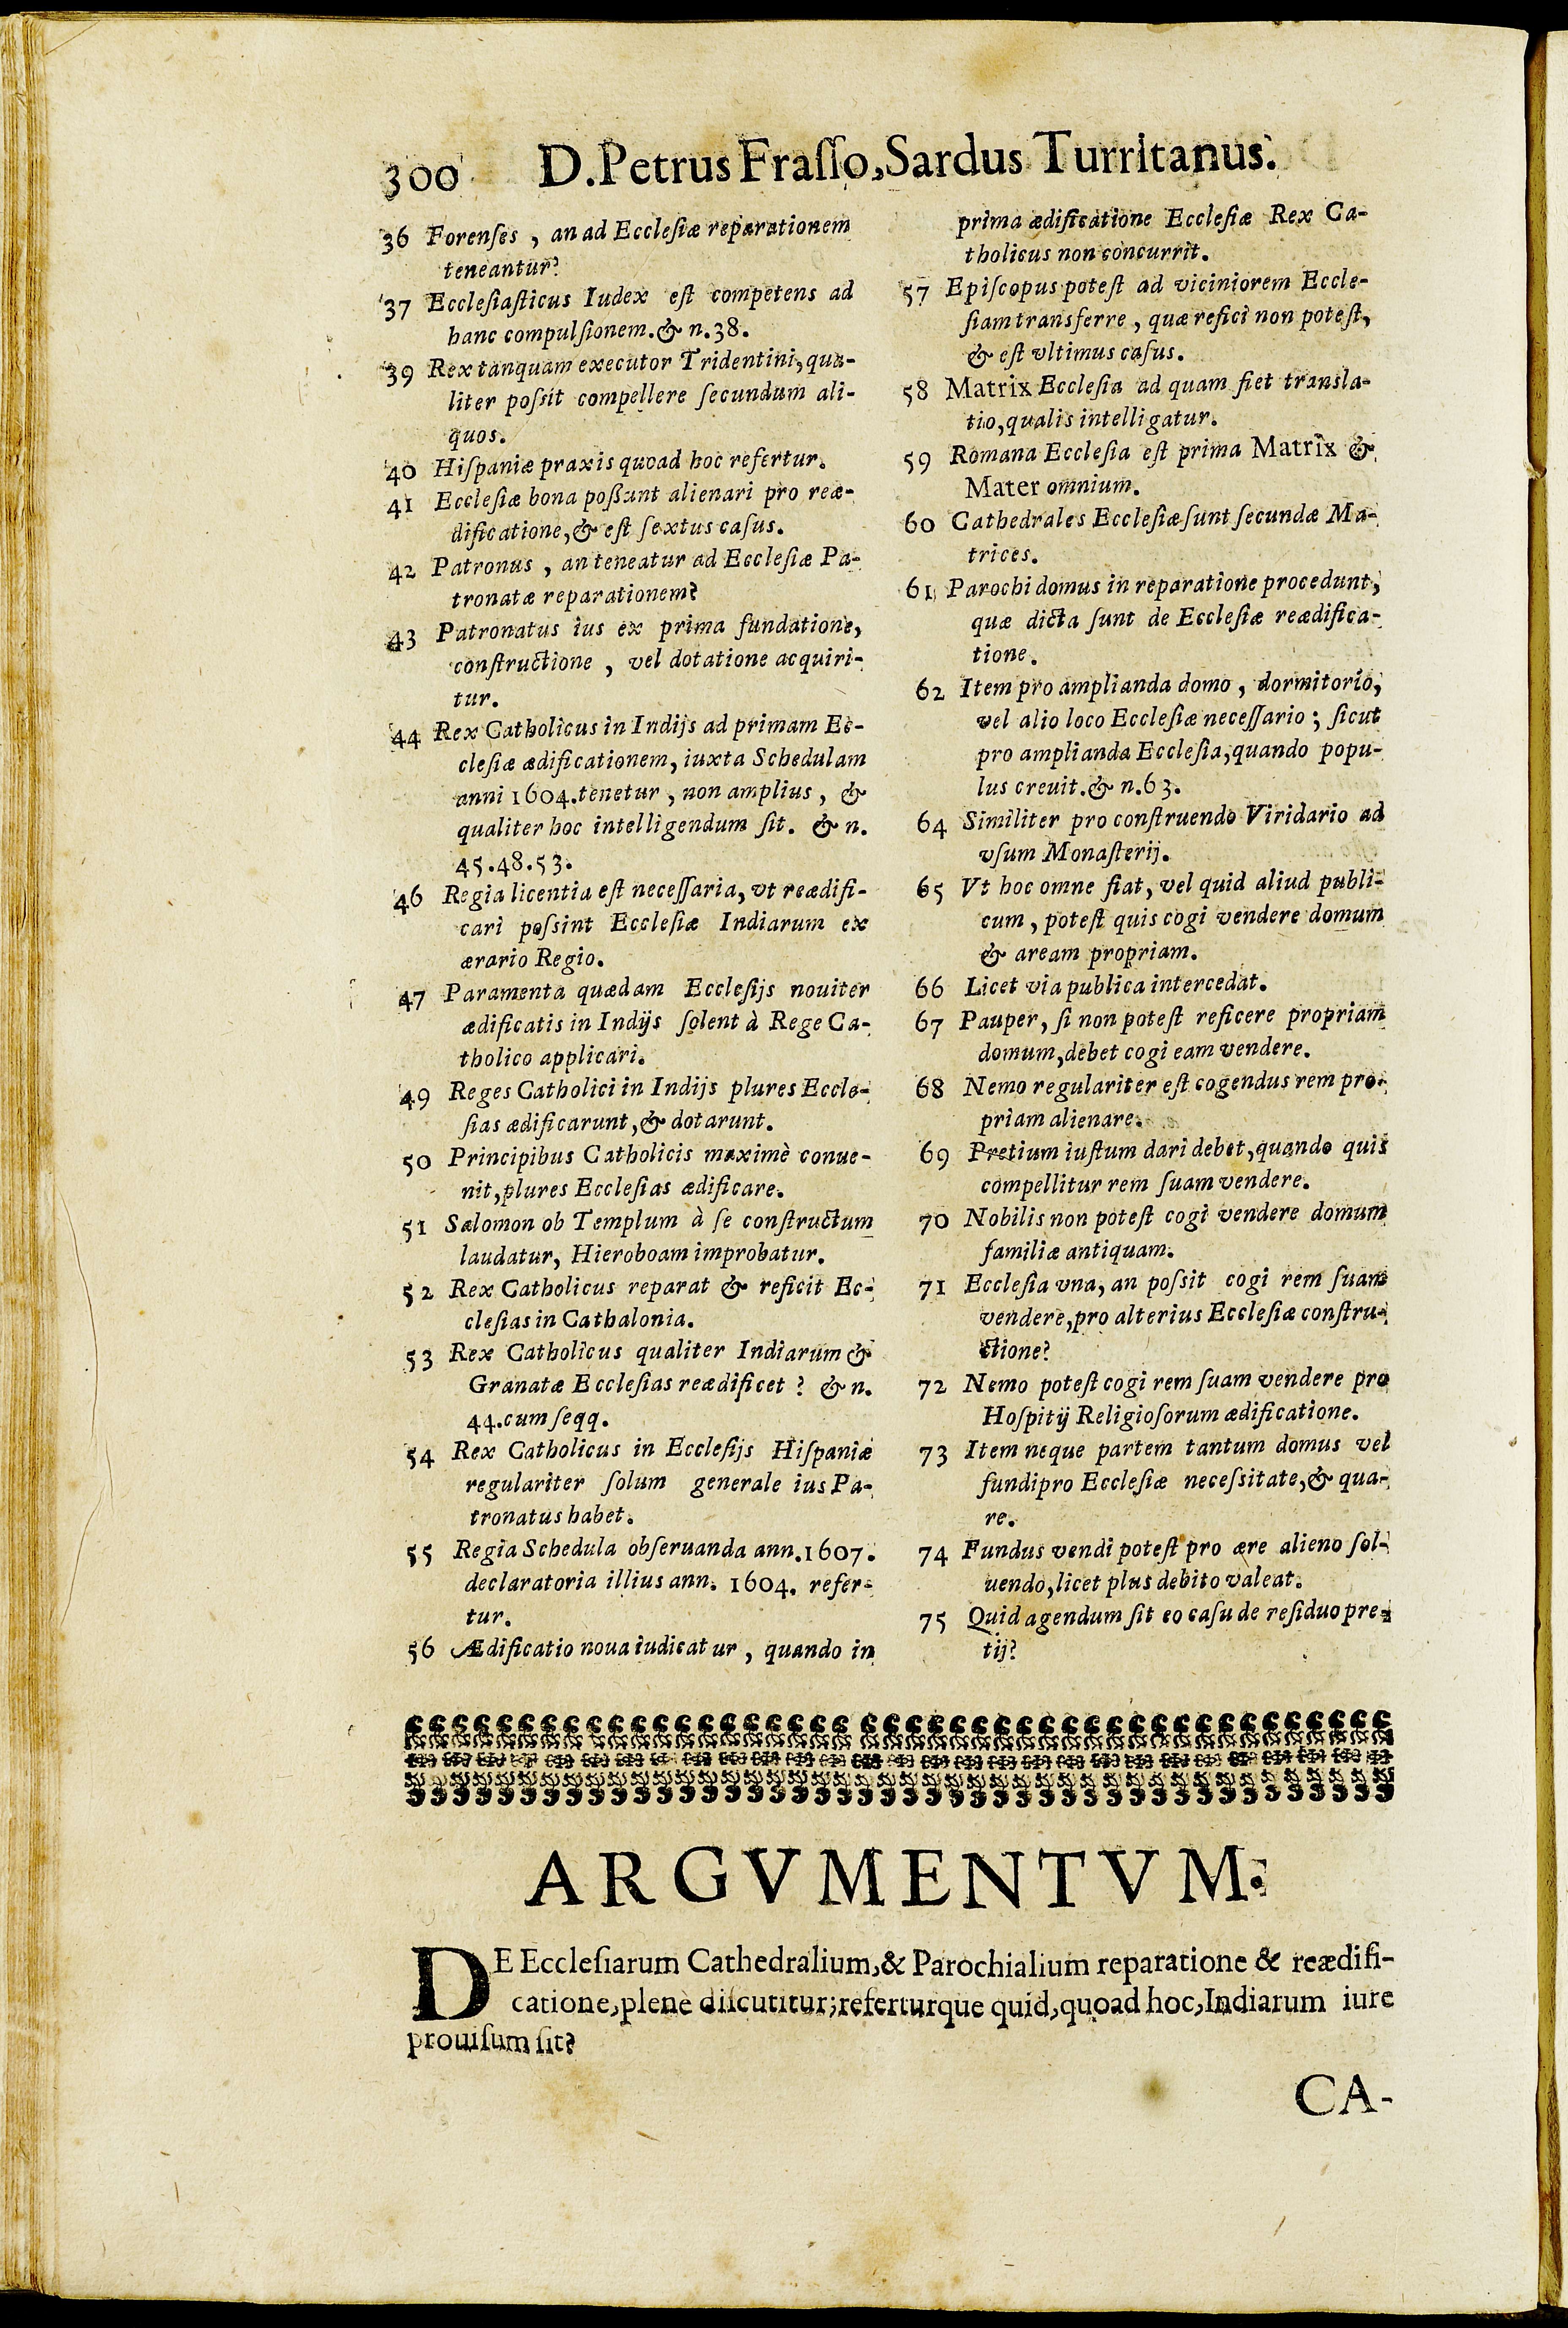 300 D. Petrus Frasso, Sardus Turritanus.
36 Forenses, an ad Ecclesiæ reparationem
teneantur?
37 Ecclesiasticus Iudex est competens ad
hanc compulsionem. & n.38.
39 Rex tanquam executor Tridentini, qua-
liter possit compellere secundum ali-
quos.
40 Hispaniæ praxis quoad hoc refertur.
41 Ecclesiæ bona possunt alienari pro reæ-
dificatione, & est sextus casus.
42 Patronus, an teneatur ad Ecclesiæ Pa-
tronatæ reparationem?
43 Patronatus ius ex prima fundatione,
constructione, vel dotatione acquiri-
tur.
44 Rex Catholicus in Indijs ad primam Ec-
clesiæ ædificationem, iuxta Schedulam
anni 1604. tenetur, non amplius, &
qualiter hoc intelligendum sit. & n.
45.48.53.
46 Regia licentia est necessaria, vt reædifi-
cari possint Ecclesiæ Indiarum ex
ærario Regio.
47 Paramenta quædam Ecclesijs nouiter
ædificatis in Indijs solent à Rege Ca-
tholico applicari.
49 Reges Catholici in Indijs plures Eccle-
sias ædificarunt, & dotarunt.
50 Principibus Catholicis maximè conue-
nit, plures Ecclesias ædificare.
51 Salomon ob Templum à se constructum
laudatur, Hieroboam improbatur.
52 Rex Catholicus reparat & reficit Ec-
clesias in Cathalonia.
53 Rex Catholicus qualiter Indiarum &
Granatæ Ecclesias reædificet? & n.
44. cum seqq.
54 Rex Catholicus in Ecclesijs Hispaniæ
regulariter solum generale ius Pa-
tronatus habet.
55 Regia Schedula obseruanda ann. 1607.
declaratoria illius ann. 1604. refer-
tur.
56 Ædificatio noua iudicatur, quando in
prima ædificatione Ecclesiæ Rex Ca-
tholicus non concurrit.
57 Episcopus potest ad viciniorem Eccle-
siam transferre, quæ refici non potest,
& est vltimus casus.
58 Matrix Ecclesia ad quam fiet transla-
tio, qualis intelligatur.
59 Romana Ecclesia est prima Matrix &
Mater omnium.
60 Cathedrales Ecclesiæ sunt secundæ Ma-
trices.
61 Parochi domus in reparatione procedunt,
quæ dicta sunt de Ecclesiæ reædifica-
tione.
62 Item pro amplianda domo, dormitorio,
vel alio loco Ecclesiæ necessario; sicut
pro amplianda Ecclesia, quando popu-
lus creuit. & n.63.
64 Similiter pro construendo Viridario ad
vsum Monasterij.
65 Vt hoc omne fiat, vel quid aliud publi-
cum, potest quis cogi vendere domum
& aream propriam.
66 Licet via publica intercedat.
67 Pauper, si non potest reficere propriam
domum, debet cogi eam vendere.
68 Nemo regulariter est cogendus rem pro-
priam alienare.
69 Pretium iustum dari debet, quando quis
compellitur rem suam vendere.
70 Nobilis non potest cogi vendere domum
familiæ antiquam.
71 Ecclesia vna, an possit cogi rem suam
vendere, pro alterius Ecclesiæ constru-
ctione?
72 Nemo potest cogi rem suam vendere pro
Hospitij Religiosorum ædificatione.
73 Item neque partem tantum domus vel
fundi pro Ecclesiæ necessitate, & qua-
re.
74 Fundus vendi potest pro ære alieno sol-
uendo, licet plus debito valeat.
75 Quid agendum sit eo casu de residuo pre-
tij?
ARGVMENTVM.
DE Ecclesiarum Cathedralium, & Parochialium reparatione & reædifi-
catione, plenè discutitur; referturque quid, quoad hoc, Indiarum iure
prouisum sit?
CA-